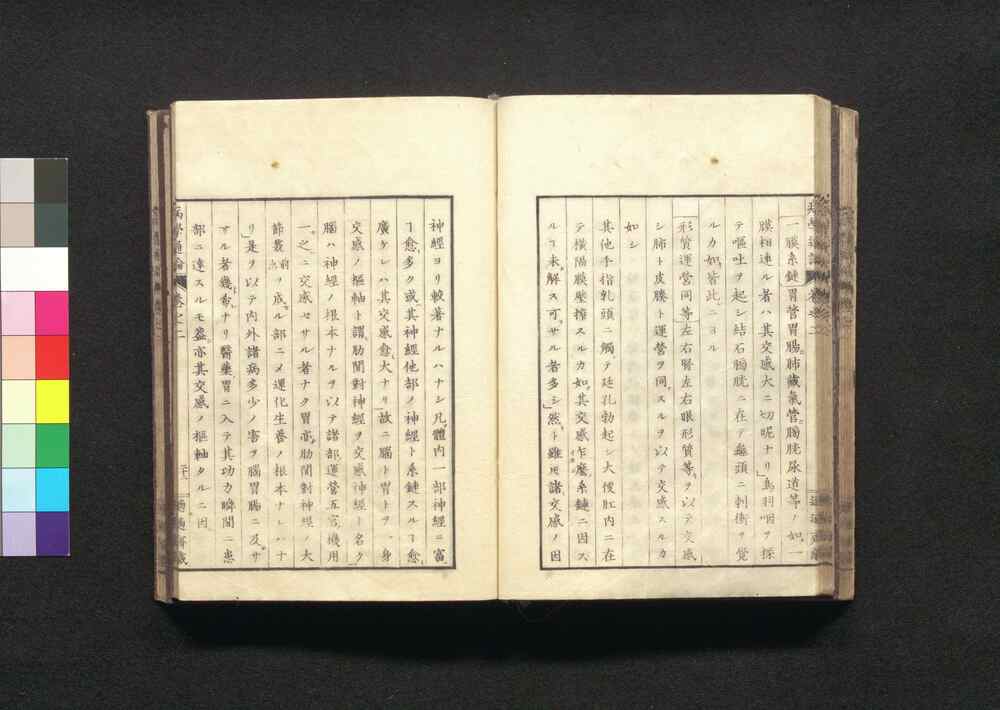 病學通論 卷之二
一膜系鏈胃管胃腸肺藏氣管膓胱尿道等ノ如シ一
膜相連ル者ハ其交感大ニ切昵ナリ鳥羽咽ヲ探
テ嘔吐ヲ起シ結石膀胱ニ在テ龜頭ニ刺衝ヲ覺
ルカ如シ皆此ニヨル
形質運營同等左右腎左右眼形質等ヲ以テ交感
シ肺ト皮膚ト運營ヲ同スルヲ以テ交感スルカ
如シ
其他手指乳頭ニ觸テ廷孔勃起シ大便肛内ニ在
テ橫隔膜壓搾スルカ如キ其交感乍麼系鏈ニ因ス
ルヿ未解ス可サル者多シ然ト雖用諸交感ノ因
神經ヨリ較著ナルハナシ凡體内一部神經ニ富
ヿ愈多ク或其神經他部ノ神經ト系鏈スルヿ愈
廣ケレハ其交感愈大ナリ故ニ腦ト胃トヲ一身
交感ノ樞軸ト謂肋間對神經ヲ交感神經ト名ク
腦ハ神經ノ根本ナルヲ以テ諸部運營五官機用
一之ニ交感セサル者ナク胃亦肋間對神經ノ大
節叢前ニ出ヲ成ル部ニメ運化生養ノ根本ナレハナ
リ是ヲ以テ内外諸病多少ノ害ヲ腦胃腸ニ及サ
ヾル者幾希ナリ醫藥胃ニ入テ其功力瞬間ニ患
部ニ達スルモ蓋亦其交感ノ樞軸タルニ因
病學通論 卷之二